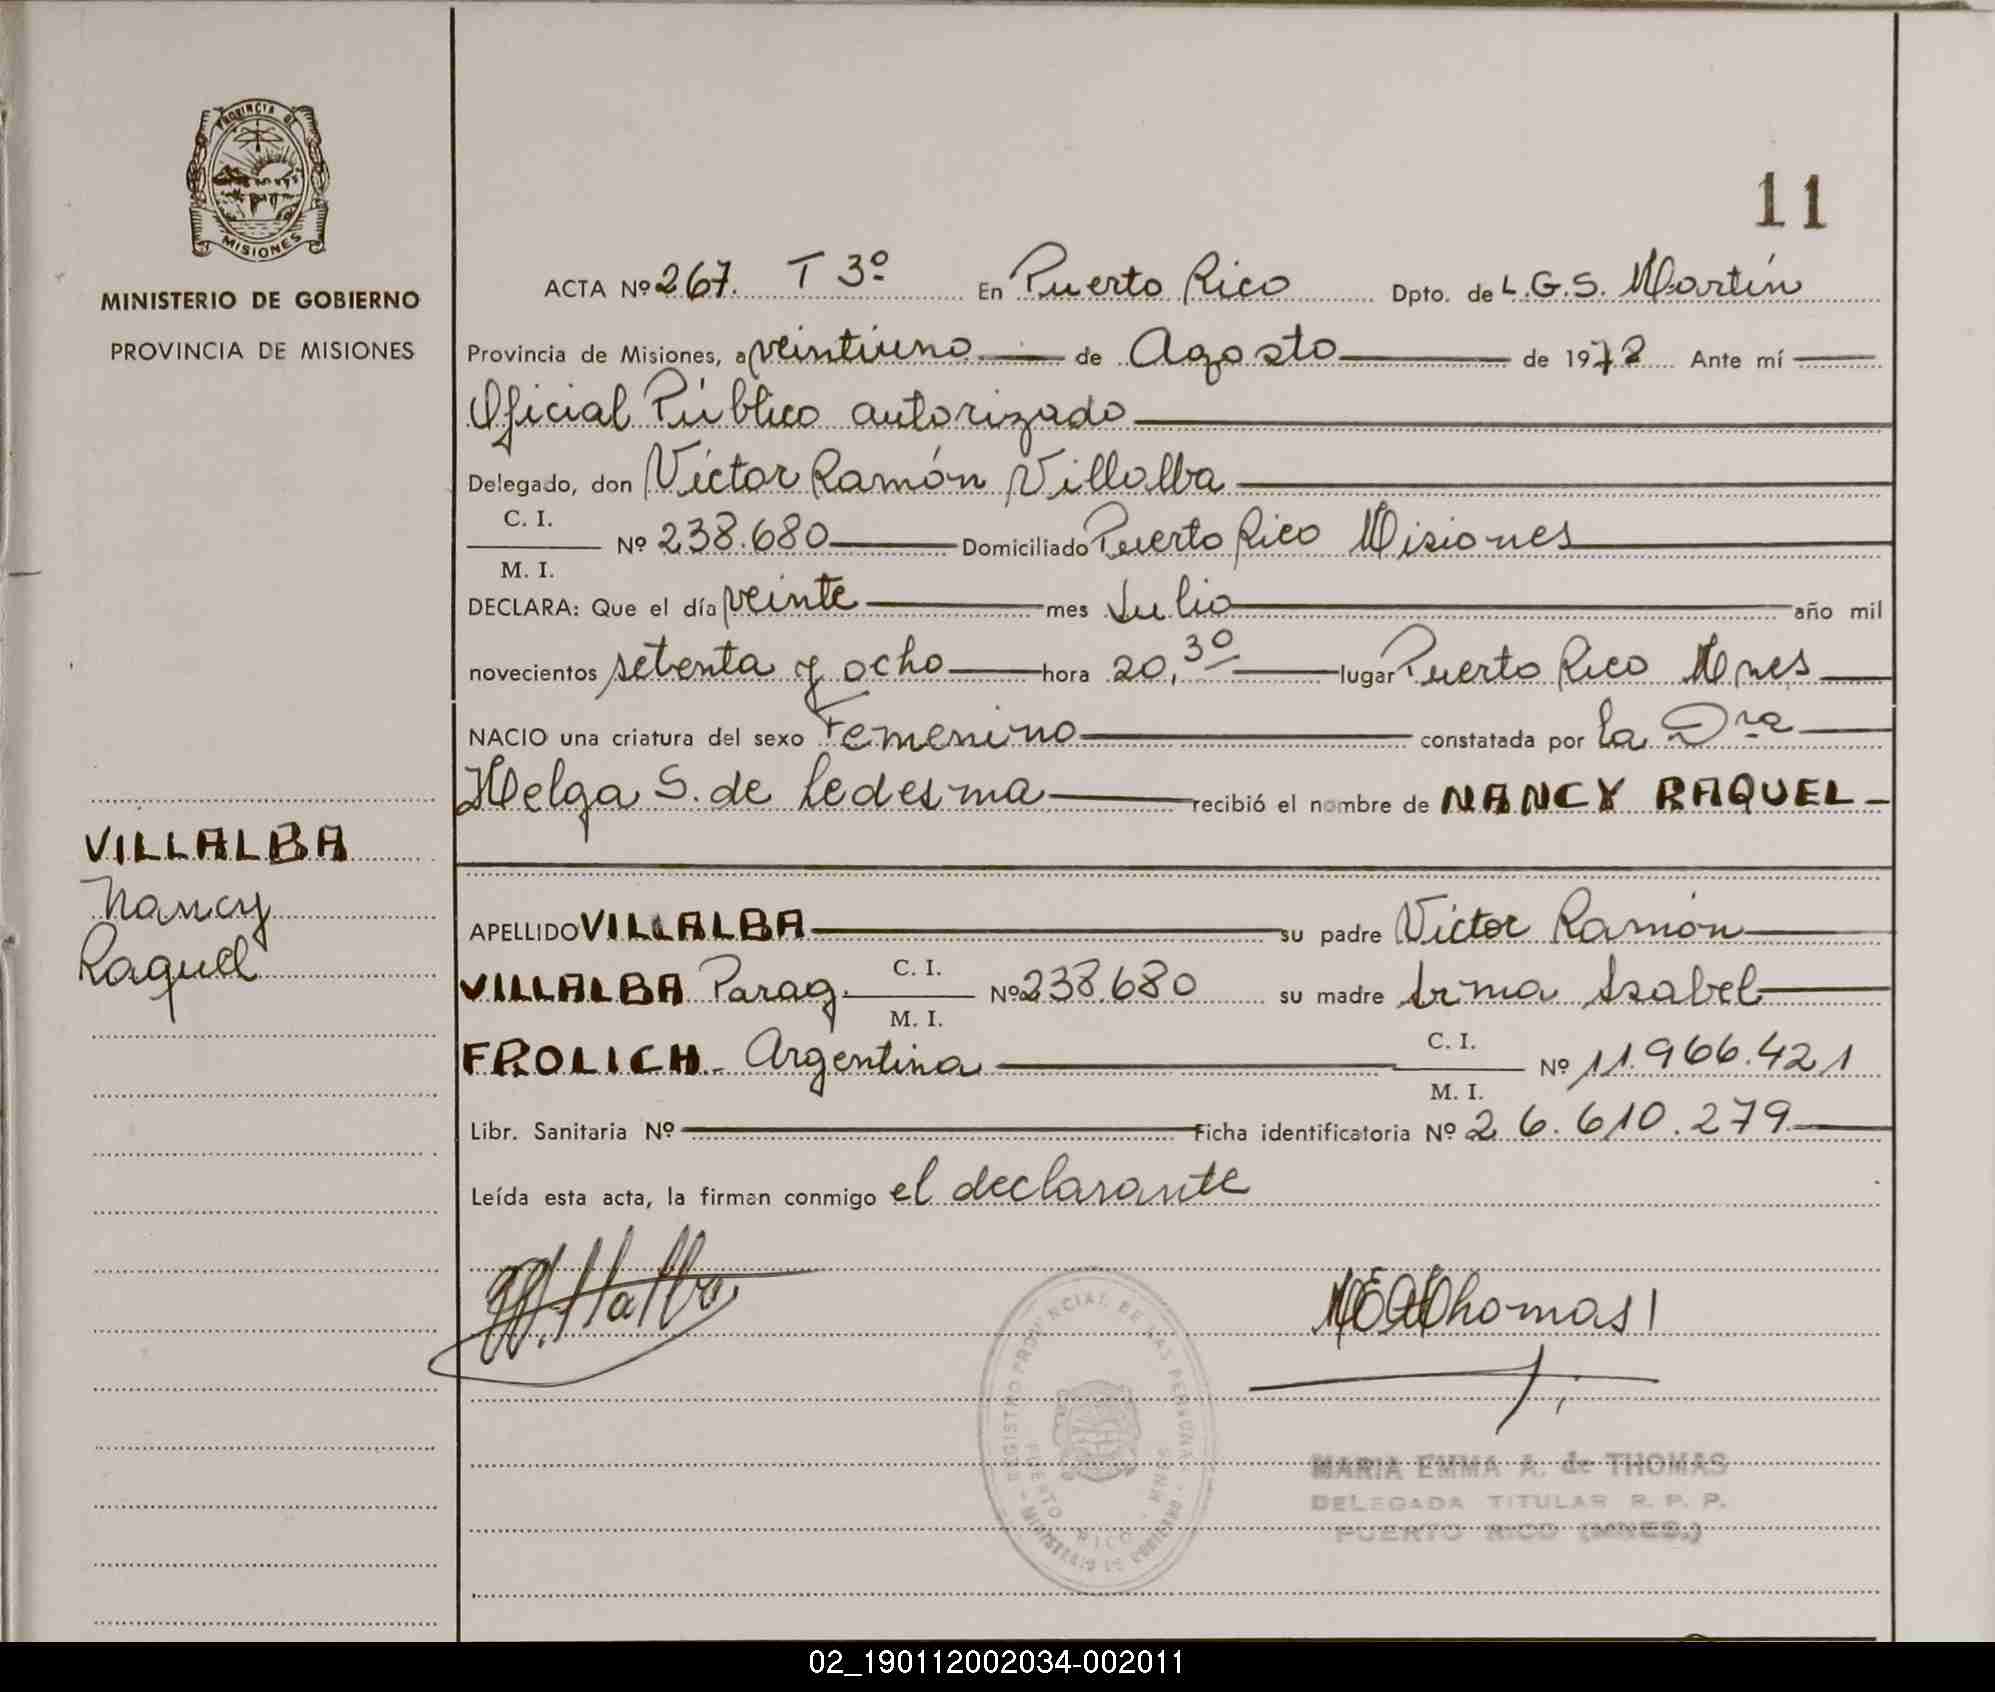 PROVINCIA DE
MISIONES
MINISTERIO DE GOBIERNO
PROVINCIA DE MISIONES
VILLALBA
Nancy
Raquel
11
ACTA Nº 267. T 3º En Puerto Rico Dpto. de L.G.S. Martín
Provincia de Misiones, a veintiuno de Agosto de 1978 Ante mí
Oficial Público autorizado
Delegado, don Víctor Ramón Villalba
C. I.
Nº 238.680 Domiciliado Puerto Rico Misiones
M. I.
DECLARA: Que el día veinte mes Julio año mil
novecientos setenta y ocho hora 20,30 lugar Puerto Rico Mnes
NACIO una criatura del sexo Femenino constatada por la Dra
Helga S. de Ledesma recibió el nombre de NANCY RAQUEL
APELLIDO VILLALBA su padre Víctor Ramón
VILLALBA Parag. C. I. Nº 238.680 su madre Irma Isabel
M. I.
FROLICH Argentina C. I. Nº 11.966.421
M. I.
Libr. Sanitaria Nº Ficha identificatoria Nº 26.610.279
Leída esta acta, la firman conmigo el declarante
REGISTRO PROVINCIAL DE LAS PERSONAS
PUERTO RICO - MNES
MINISTERIO DE GOBIERNO
MARIA EMMA A. de THOMAS
DELEGADA TITULAR R. P. P.
PUERTO RICO (MNES.)
02_190112002034-002011